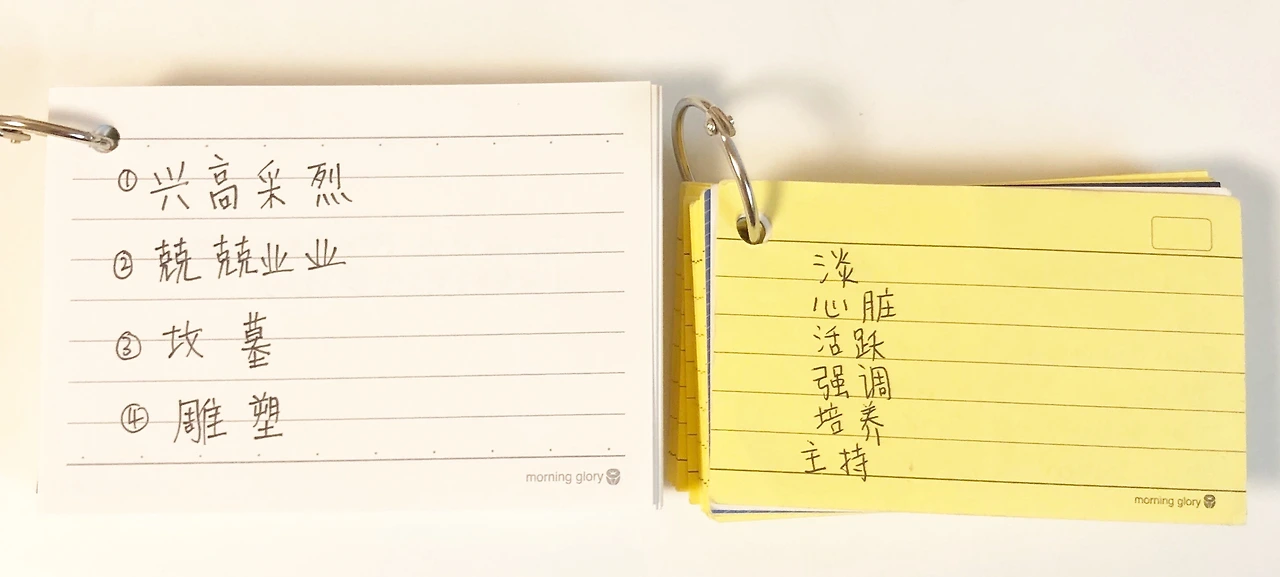 ① 兴高采烈
② 兢兢业业
③ 坟墓
④ 雕塑
morning glory
淡
心脏
活跃
强调
培养
主持
morning glory